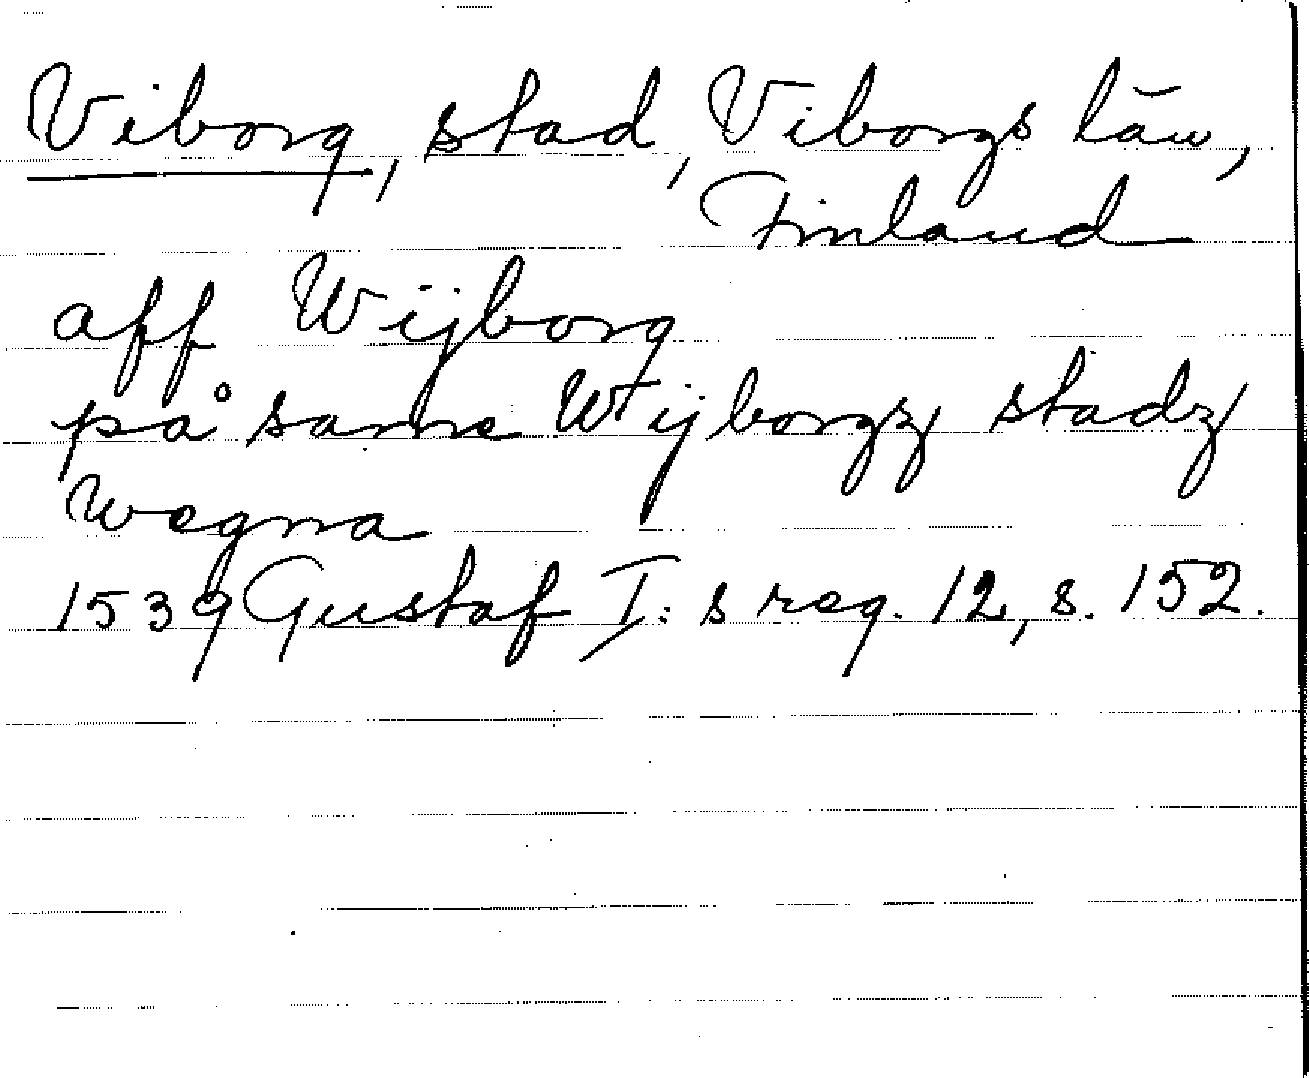 Viborg, stad, Viborgs län,
Finland
aff Wijborg
på same Wijborgz stadz
wegna
1539 Gustaf I: s reg. 12, s. 152.